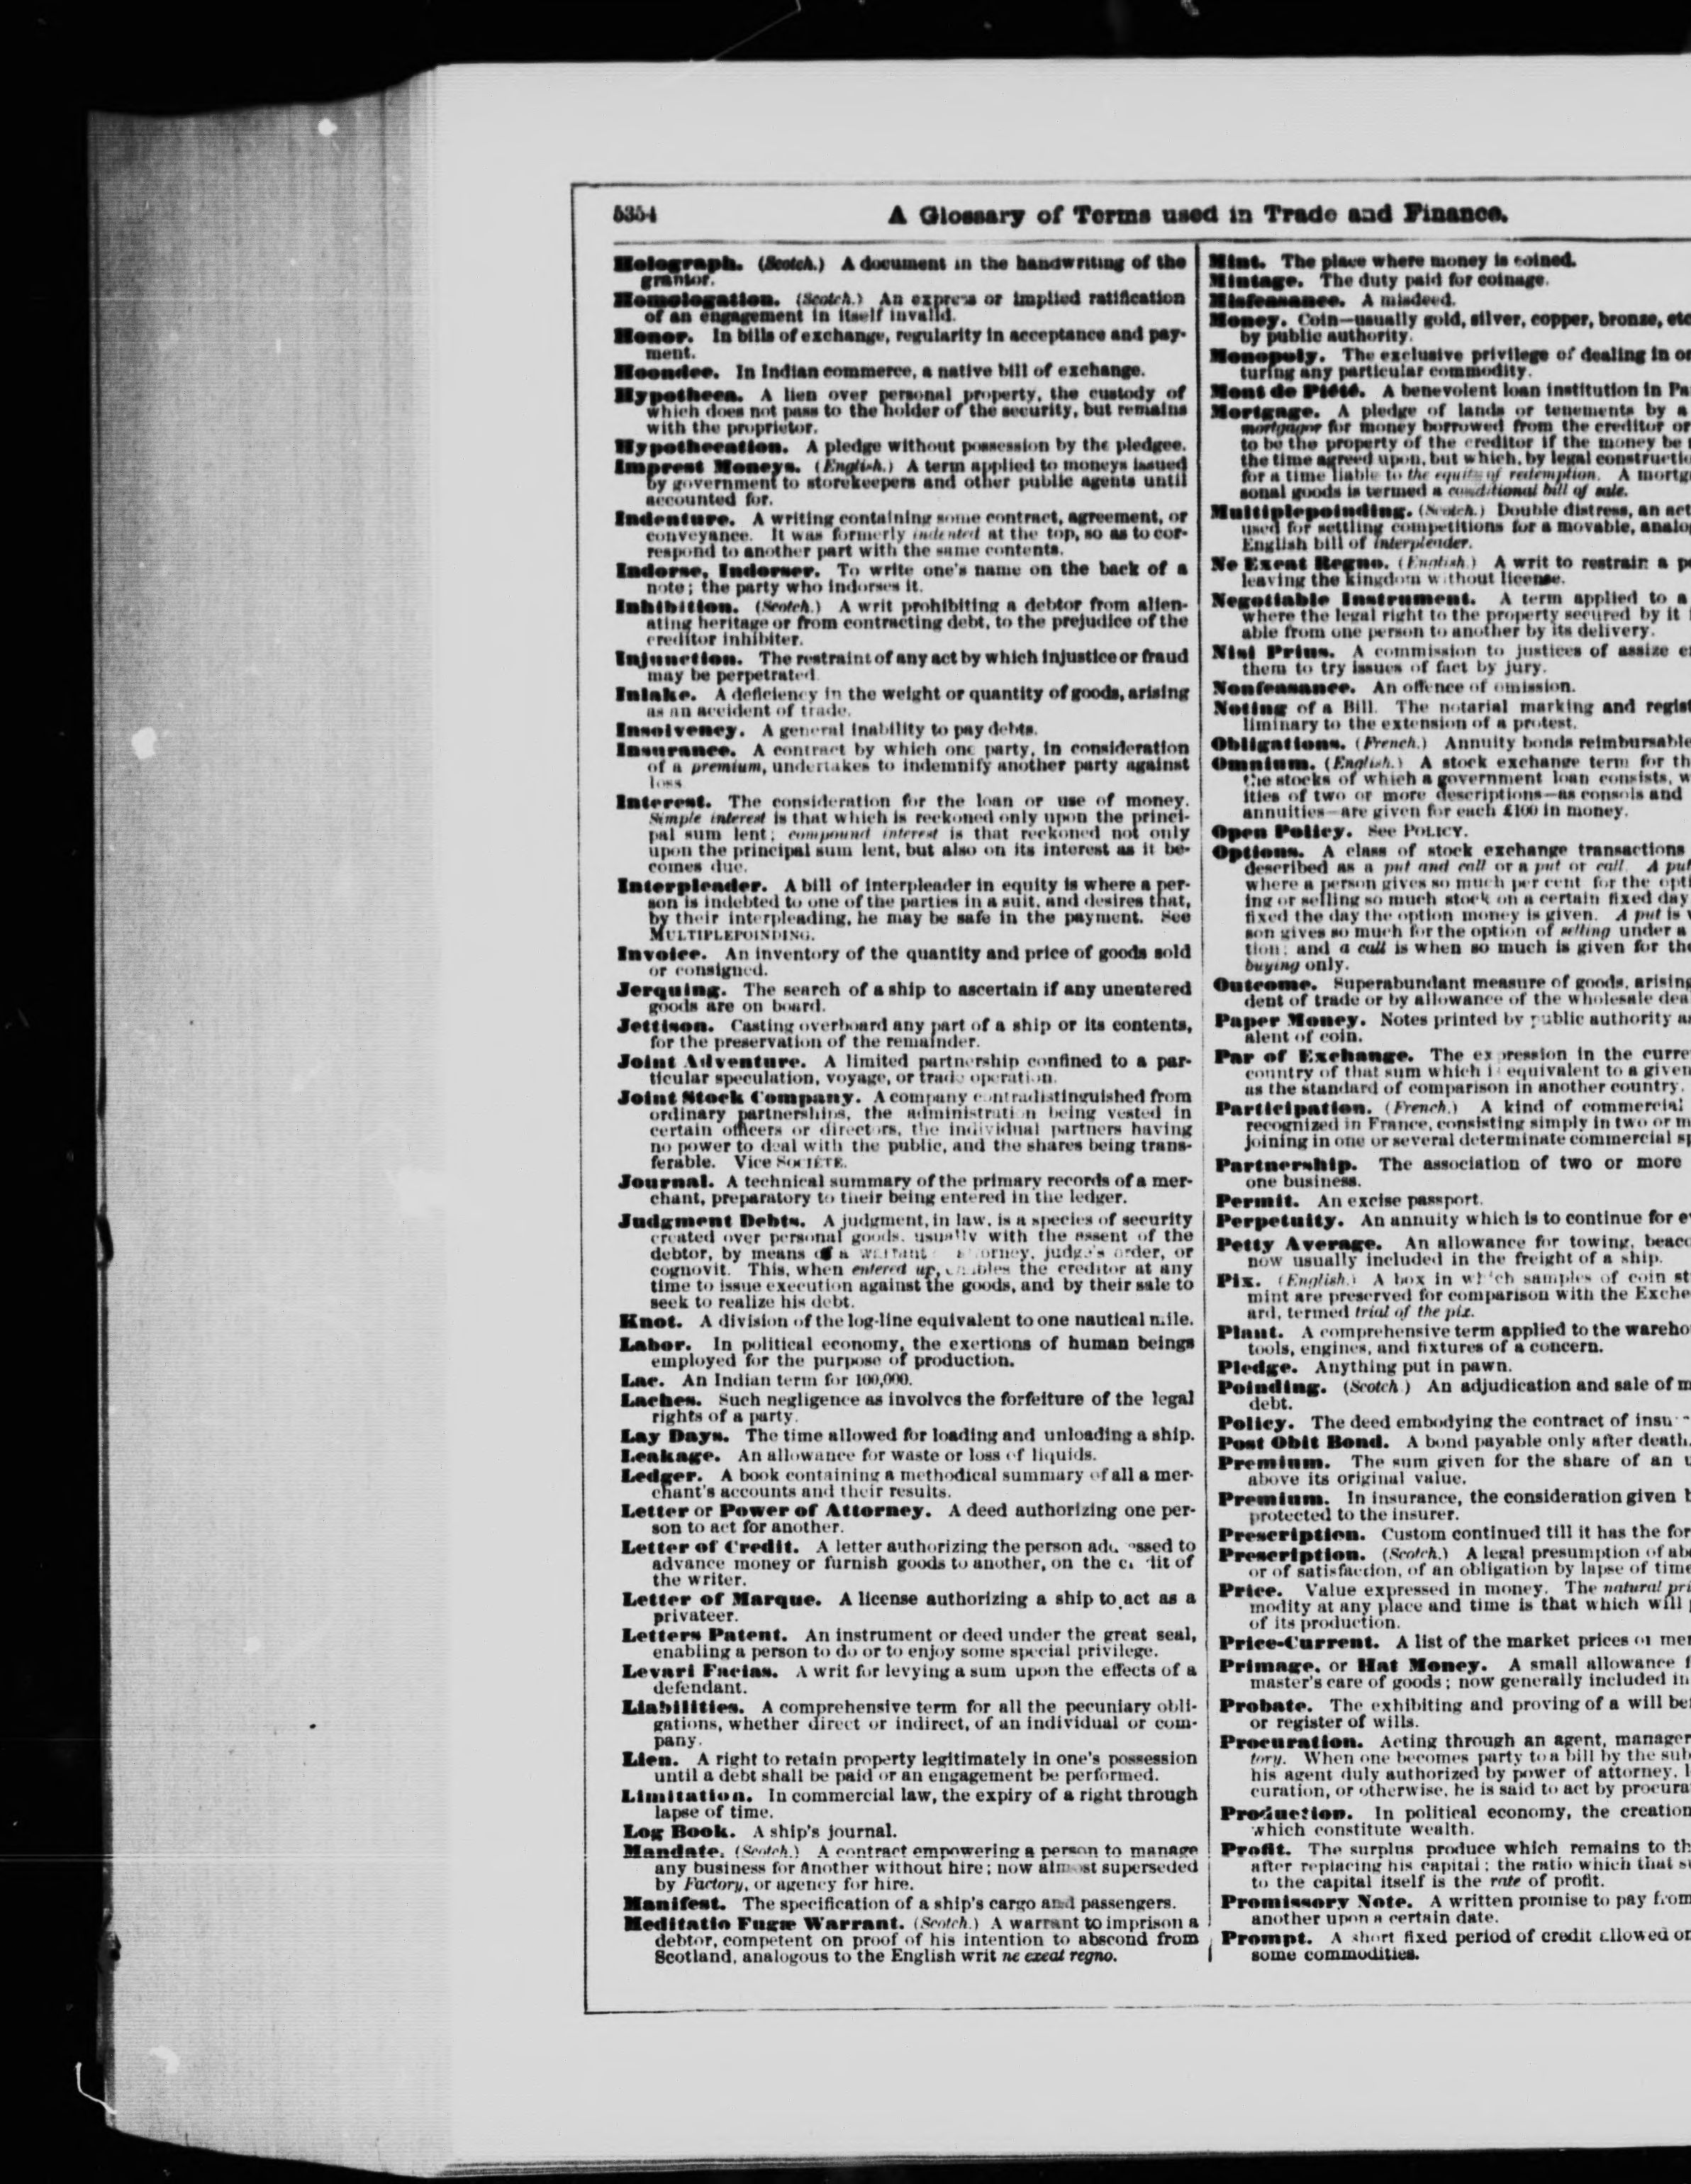 5354
A Glossary of Terms used in Trade and Finance.
Holograph. (Scotch.) A document in the handwriting of the
grantor.
Homologation. (Scotch.) An express or implied ratification
of an engagement in itself invalid.
Honor. In bills of exchange, regularity in acceptance and pay-
ment.
Hoondee. In Indian commerce, a native bill of exchange.
Hypotheca. A lien over personal property, the custody of
which does not pass to the holder of the security, but remains
with the proprietor.
Hypothecation. A pledge without possession by the pledgee.
Imprest Moneys. (English.) A term applied to moneys issued
by government to storekeepers and other public agents until
accounted for.
Indenture. A writing containing some contract, agreement, or
conveyance. It was formerly indented at the top, so as to cor-
respond to another part with the same contents.
Indorse, Indorser. To write one's name on the back of a
note; the party who indorses it.
Inhibition. (Scotch.) A writ prohibiting a debtor from alien-
ating heritage or from contracting debt, to the prejudice of the
creditor inhibiter.
Injunction. The restraint of any act by which injustice or fraud
may be perpetrated
Inlake. A deficiency in the weight or quantity of goods, arising
as an accident of trade.
Insolvency. A general inability to pay debts.
Insurance. A contract by which one party, in consideration
of a premium, undertakes to indemnify another party against
loss
Interest. The consideration for the loan or use of money.
Simple interest is that which is reckoned only upon the princi-
pal sum lent; compound interest is that reckoned not only
upon the principal sum lent, but also on its interest as it be-
comes due.
Interpleader. A bill of interpleader in equity is where a per-
son is indebted to one of the parties in a suit, and desires that,
by their interpleading, he may be safe in the payment. See
MULTIPLEPOINDING.
Invoice. An inventory of the quantity and price of goods sold
or consigned.
Jerquing. The search of a ship to ascertain if any unentered
goods are on board.
Jettison. Casting overboard any part of a ship or its contents,
for the preservation of the remainder.
Joint Adventure. A limited partnership confined to a par-
ticular speculation, voyage, or trade operation.
Joint Stock Company. A company contradistinguished from
ordinary partnerships, the administration being vested in
certain officers or directors, the individual partners having
no power to deal with the public, and the shares being trans-
ferable. Vice SOCIÉTÉ.
Journal. A technical summary of the primary records of a mer-
chant, preparatory to their being entered in the ledger.
Judgment Debts. A judgment, in law, is a species of security
created over personal goods, usually with the assent of the
debtor, by means of a warrant orney, judge's order, or
cognovit. This, when entered up, enables the creditor at any
time to issue execution against the goods, and by their sale to
seek to realize his debt.
Knot. A division of the log-line equivalent to one nautical mile.
Labor. In political economy, the exertions of human beings
employed for the purpose of production.
Lac. An Indian term for 100,000.
Laches. Such negligence as involves the forfeiture of the legal
rights of a party.
Lay Days. The time allowed for loading and unloading a ship.
Leakage. An allowance for waste or loss of liquids.
Ledger. A book containing a methodical summary of all a mer-
chant's accounts and their results.
Letter or Power of Attorney. A deed authorizing one per-
son to act for another.
Letter of Credit. A letter authorizing the person ad ssed to
advance money or furnish goods to another, on the c dit of
the writer.
Letter of Marque. A license authorizing a ship to act as a
privateer.
Letters Patent. An instrument or deed under the great seal,
enabling a person to do or to enjoy some special privilege.
Levari Facias. A writ for levying a sum upon the effects of a
defendant.
Liabilities. A comprehensive term for all the pecuniary obli-
gations, whether direct or indirect, of an individual or com-
pany.
Lien. A right to retain property legitimately in one's possession
until a debt shall be paid or an engagement be performed.
Limitation. In commercial law, the expiry of a right through
lapse of time.
Log Book. A ship's journal.
Mandate. (Scotch.) A contract empowering a person to manage
any business for another without hire; now almost superseded
by Factory, or agency for hire.
Manifest. The specification of a ship's cargo and passengers.
Meditatio Fugæ Warrant. (Scotch.) A warrant to imprison a
debtor, competent on proof of his intention to abscond from
Scotland, analogous to the English writ ne exeat regno.
Mint. The place where money is coined.
Mintage. The duty paid for coinage.
Misfeasance. A misdeed.
Money. Coin—usually gold, silver, copper, bronze, etc
by public authority.
Monopoly. The exclusive privilege of dealing in or
turing any particular commodity.
Mont de Piété. A benevolent loan institution in Pa
Mortgage. A pledge of lands or tenements by a
mortgagor for money borrowed from the creditor or
to be the property of the creditor if the money be
the time agreed upon, but which, by legal constructi
for a time liable to the equity of redemption. A mortg
sonal goods is termed a conditional bill of sale.
Multiplepoinding. (Scotch.) Double distress, an act
used for settling competitions for a movable, analo
English bill of interpleader.
Ne Exeat Regno. (English.) A writ to restrain a p
leaving the kingdom without license.
Negotiable Instrument. A term applied to a
where the legal right to the property secured by it
able from one person to another by its delivery.
Nisi Prius. A commission to justices of assize e
them to try issues of fact by jury.
Nonfeasance. An offence of omission.
Noting of a Bill. The notarial marking and regist
liminary to the extension of a protest.
Obligations. (French.) Annuity bonds reimbursable
Omnium. (English.) A stock exchange term for th
the stocks of which a government loan consists, w
ities of two or more descriptions—as consols and
annuities—are given for each £100 in money.
Open Policy. See POLICY.
Options. A class of stock exchange transactions
described as a put and call or a put or call. A put
where a person gives so much per cent for the opti
ing or selling so much stock on a certain fixed day
fixed the day the option money is given. A put is
son gives so much for the option of selling under a
tion; and a call is when so much is given for the
buying only.
Outcome. Superabundant measure of goods, arising
dent of trade or by allowance of the wholesale dea
Paper Money. Notes printed by public authority as
alent of coin.
Par of Exchange. The expression in the curre
country of that sum which is equivalent to a given
as the standard of comparison in another country.
Participation. (French.) A kind of commercial
recognized in France, consisting simply in two or m
joining in one or several determinate commercial sp
Partnership. The association of two or more
one business.
Permit. An excise passport.
Perpetuity. An annuity which is to continue for e
Petty Average. An allowance for towing, beaco
now usually included in the freight of a ship.
Pix. (English.) A box in which samples of coin st
mint are preserved for comparison with the Exche
ard, termed trial of the pix.
Plant. A comprehensive term applied to the wareho
tools, engines, and fixtures of a concern.
Pledge. Anything put in pawn.
Poinding. (Scotch.) An adjudication and sale of m
debt.
Policy. The deed embodying the contract of insu
Post Obit Bond. A bond payable only after death.
Premium. The sum given for the share of an u
above its original value.
Premium. In insurance, the consideration given b
protected to the insurer.
Prescription. Custom continued till it has the for
Prescription. (Scotch.) A legal presumption of ab
or of satisfaction, of an obligation by lapse of time
Price. Value expressed in money. The natural pri
modity at any place and time is that which will
of its production.
Price-Current. A list of the market prices of mer
Primage, or Hat Money. A small allowance f
master's care of goods; now generally included in
Probate. The exhibiting and proving of a will be
or register of wills.
Procuration. Acting through an agent, manager
tory. When one becomes party to a bill by the sub
his agent duly authorized by power of attorney, l
curation, or otherwise, he is said to act by procura
Production. In political economy, the creation
which constitute wealth.
Profit. The surplus produce which remains to th
after replacing his capital; the ratio which that s
to the capital itself is the rate of profit.
Promissory Note. A written promise to pay from
another upon a certain date.
Prompt. A short fixed period of credit allowed or
some commodities.